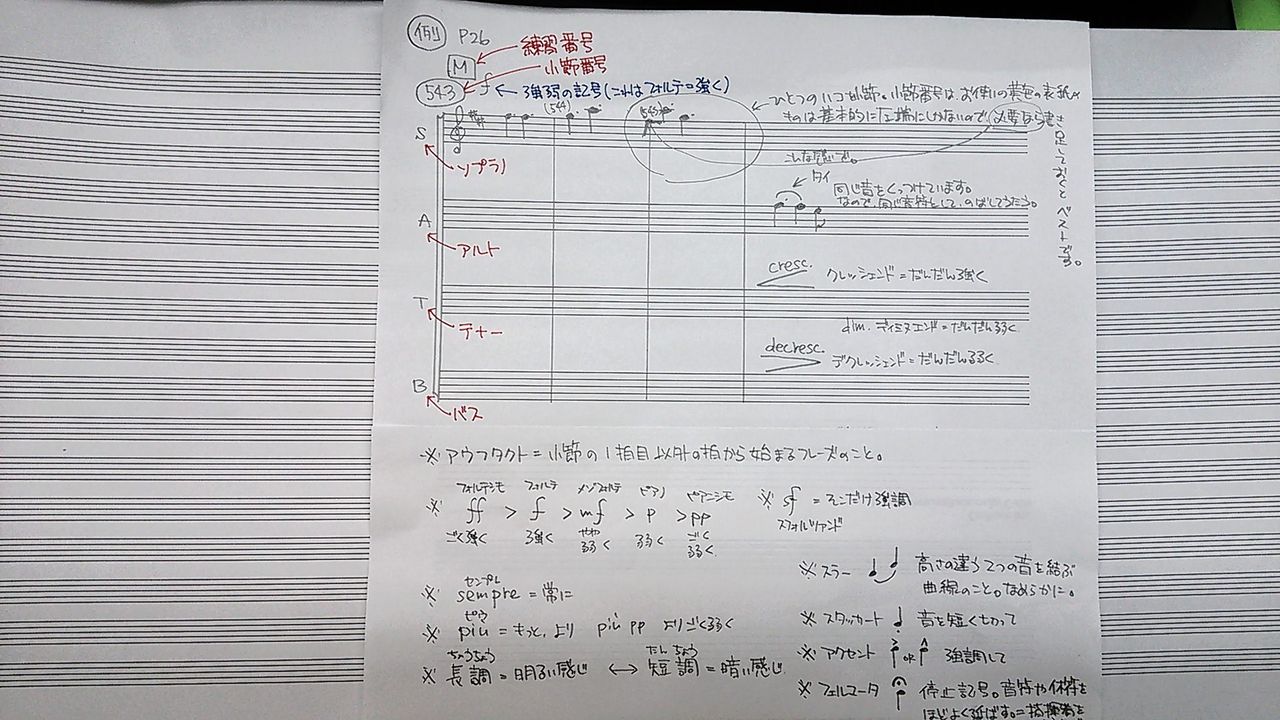 例 P26
M ← 練習番号
543 小節番号
f ← 強弱の記号(これはフォルテ=強く)
ひとつのハコが小節。小節番号は、お使いの黄色の表紙の
ものは基本的に左端にしかないので、必要なら書き
足しておくと ベストです。
(544) (545)
こんな感じで。
S
ソプラノ
タイ
同じ音をくっつけています。
なので、同じ音符として、のばしてうたう。
A
アルト
cresc. クレッシェンド=だんだん強く
T
テナー
dim. ディミヌエンド=だんだん弱く
decresc. デクレッシェンド=だんだん弱く
B
バス
※ アウフタクト=小節の1拍目以外の拍から始まるフレーズのこと。
フォルテシモ フォルテ メゾフォルテ ピアノ ピアニシモ
※ ff > f > mf > p > pp
ごく強く 強く やや弱く 弱く ごく弱く
※ sf = そこだけ強調
スフォルツァンド
センプレ
※ sempre = 常に
ピウ
※ piu = もっと、より piu pp よりごく弱く
ちょうちょう たんちょう
※ 長調=明るい感じ ↔ 短調=暗い感じ
※ スラー 高さの違う2つの音を結ぶ
曲線のこと。なめらかに。
※ スタッカート 音を短くきって
※ アクセント or 強調して
※ フェルマータ 停止記号。音符や休符を
ほどよく延ばす。=指揮者を